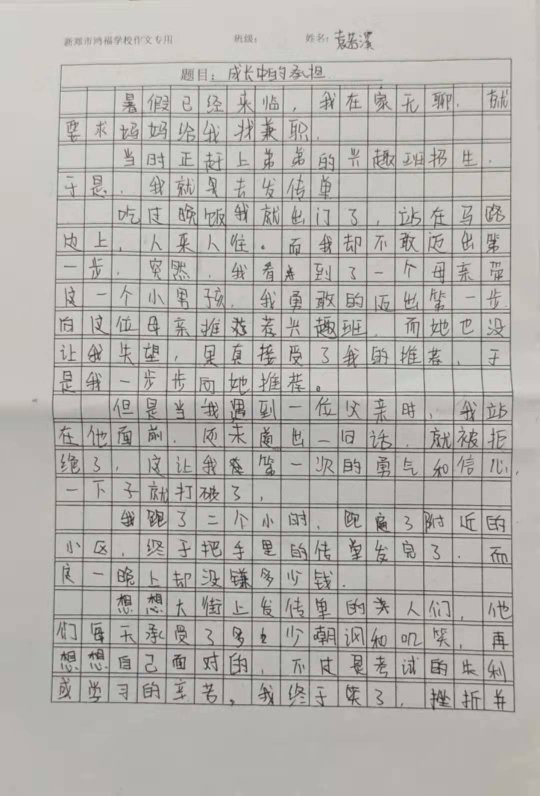 新郑市鸿福学校作文专用 班级： 姓名：袁若溪
题目：成长中的承担
暑假已经来临，我在家无聊．就
要求妈妈给我找兼职．
当时正赶上弟弟的兴趣班招生．
于是．我就是去发传单
吃过晚饭我就出门了，站在马路
边上，人来人往。而我却不敢迈出第
一步．突然．我看到了一个母亲带
这一个小男孩．我勇敢的迈出第一步
向这位母亲推荐兴趣班．而她也没
让我失望，果真接受了我的推荐，于
是我一步步向她推荐。
但是当我遇到一位父亲时，我站
在他面前．还未道出一句话．就被拒
绝了，这让我第一次的勇气和信心，
一下子就打破了，
我跑了二个小时，跑遍了附近的
小区，终于把手里的传单发完了．而
这一晚上却没赚多少钱．
想想大街上发传单的类人们，他
们每天承受了多少嘲讽和叽笑，再
想想自己面对的，不过是考试的失利
或学习的辛苦。我终于笑了，挫折并